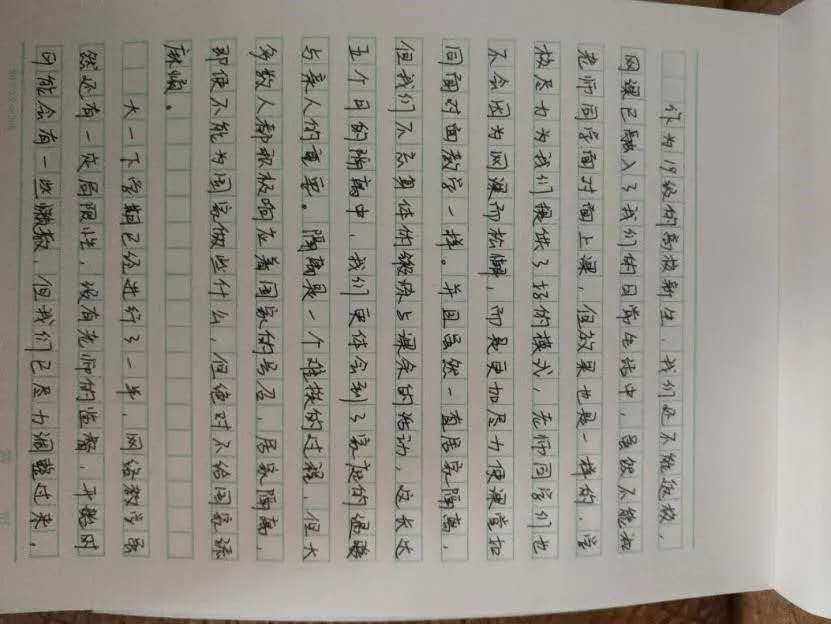 作为19级的高校新生，我们还不能返校，
网课已融入了我们的日常生活中，虽然不能和
老师同学面对面上课，但效果也是一样的，学
校尽力为我们提供了好的模式，老师同学们也
不会因为网课而松懈，而是更加尽力使课堂如
同面对面教学一样。并且虽然一直居家隔离，
但我们不忘身体的锻炼与课余的活动，这长达
五个月的隔离中，我们更体会到了家庭的温暖
与亲人的重要。隔离是一个难挨的过程，但大
多数人都积极响应着国家的号召，居家隔离，
即使不能为国家做些什么，但绝对不给国家添
麻烦。
大一下学期已经进行了一半，网络教学虽
然还有一定局限性，没有老师的监督，开始时
可能会有一些懒散，但我们已尽力调整过来，